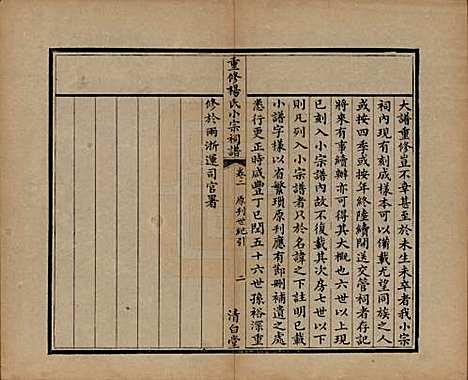 大譜重修豈不幸甚至於未生未卒者我小宗
祠內現有刻成樣本可以備載尤望同族之人
或按四季或按年終陸續開送交管祠者存記
將來有事續辦亦可得其大概也六世以上
已刻入小宗譜內故不復載其次房七世以下
則凡列入小宗譜者只於名諱之下註明已載
小譜字樣以省繁瑣原刊應有鄙刪補遺之處
悉行更正時咸豐丁巳閏五十六世孫裕深重
修於兩浙運司官署
重修楊氏小宗祠譜
卷二 原刊世紀引 二 清白堂